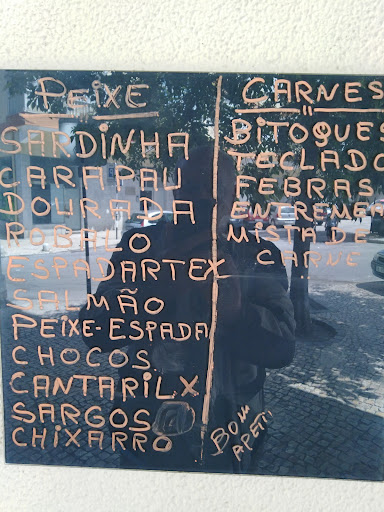 PEIXE
SARDINHA
CARAPAU
DOURADA
ROBALO
ESPADARTEX
SALMÃO
PEIXE-ESPADA
CHOCOS
CANTARILX
SARGOS
CHIXARRO
CARNES
BITOQUES
TOCLADO
FEBRAS
ENTREMEA
MISTA DE
CARNE
BOM
APETI